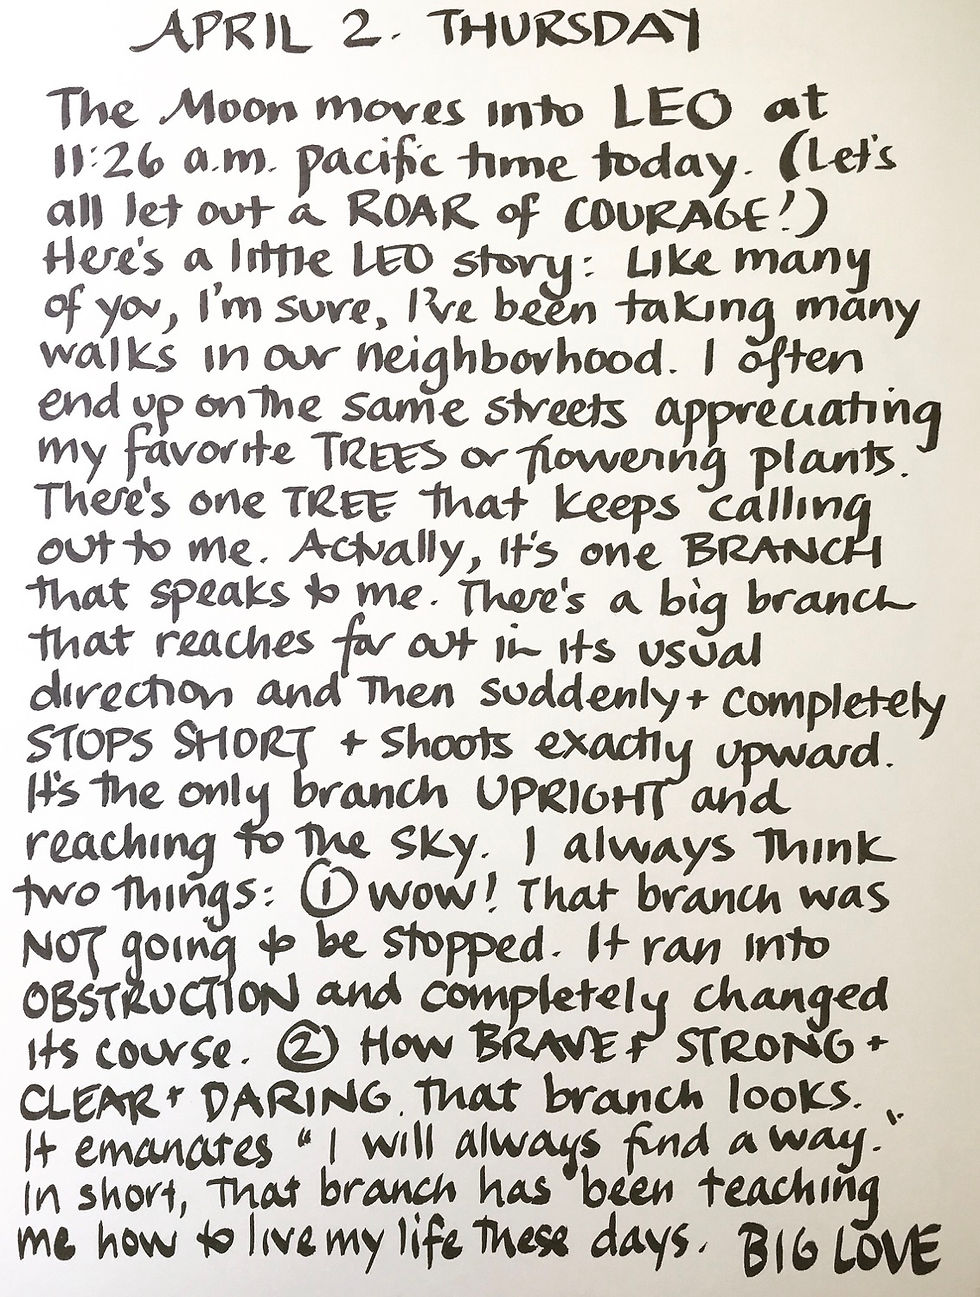 APRIL 2. THURSDAY
The Moon moves into LEO at
11:26 a.m. pacific time today. (Let's
all let out a ROAR of COURAGE!)
Here's a little LEO story: Like many
of you, I'm sure, I've been taking many
walks in our neighborhood. I often
end up on the same streets appreciating
my favorite TREES or flowering plants.
There's one TREE that keeps calling
out to me. Actually, it's one BRANCH
that speaks to me. There's a big branch
that reaches far out in its usual
direction and then suddenly + completely
STOPS SHORT + shoots exactly upward.
It's the only branch UPRIGHT and
reaching to the sky. I always think
two things: ① wow! That branch was
NOT going to be stopped. It ran into
OBSTRUCTION and completely changed
its course. ② How BRAVE + STRONG +
CLEAR + DARING that branch looks.
It emanates "I will always find a way."
In short, that branch has been teaching
me how to live my life these days. BIG LOVE